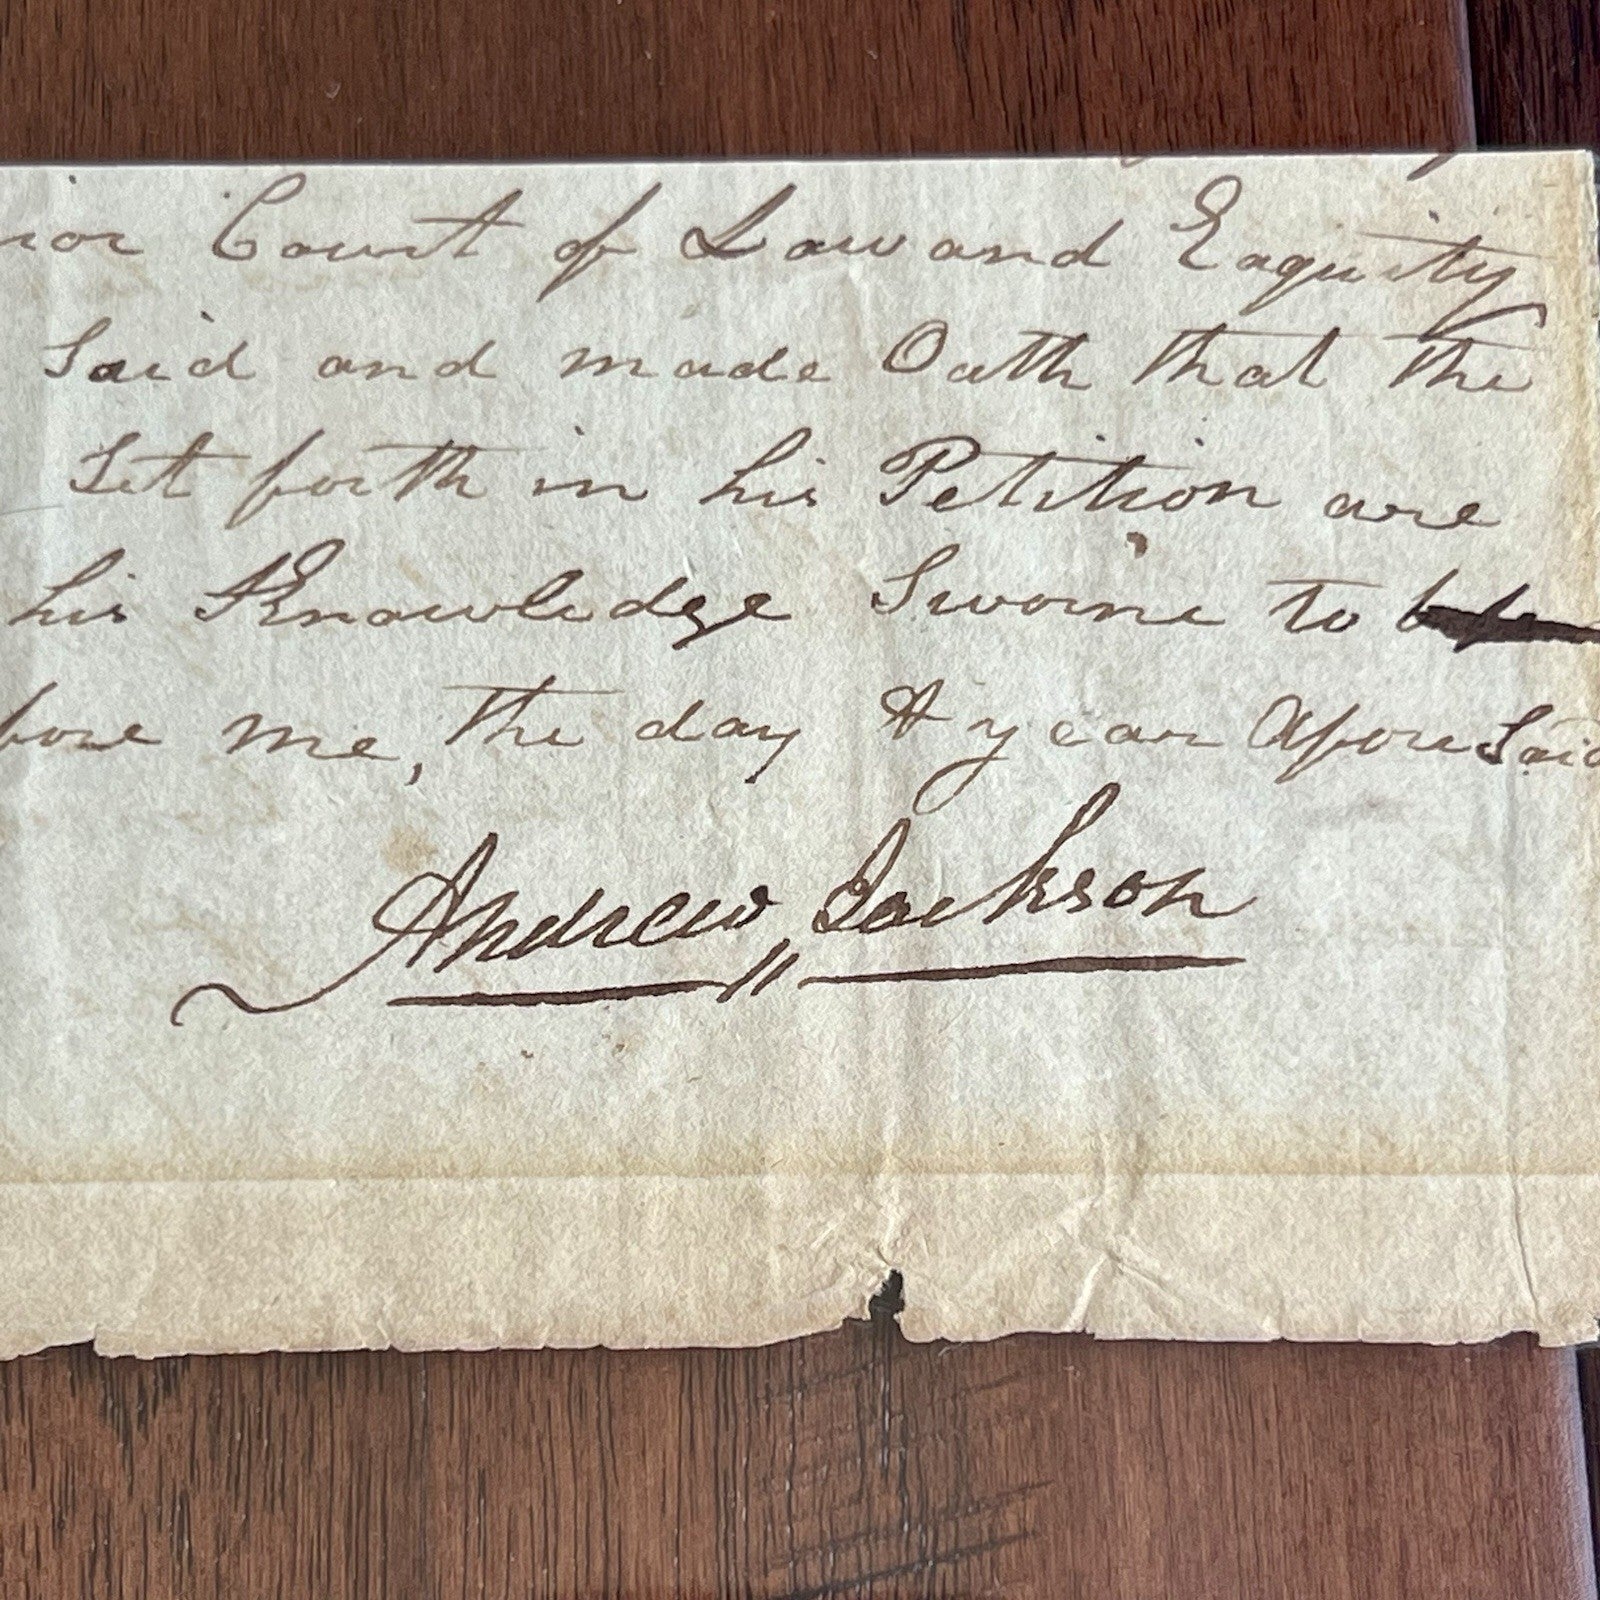 rior Court of Law and Eaquity
Said and made Oath that the
Set forth in his Petition are
his Knowledge Sworne to
fore me, the day & year Afore Said
Andrew Jackson